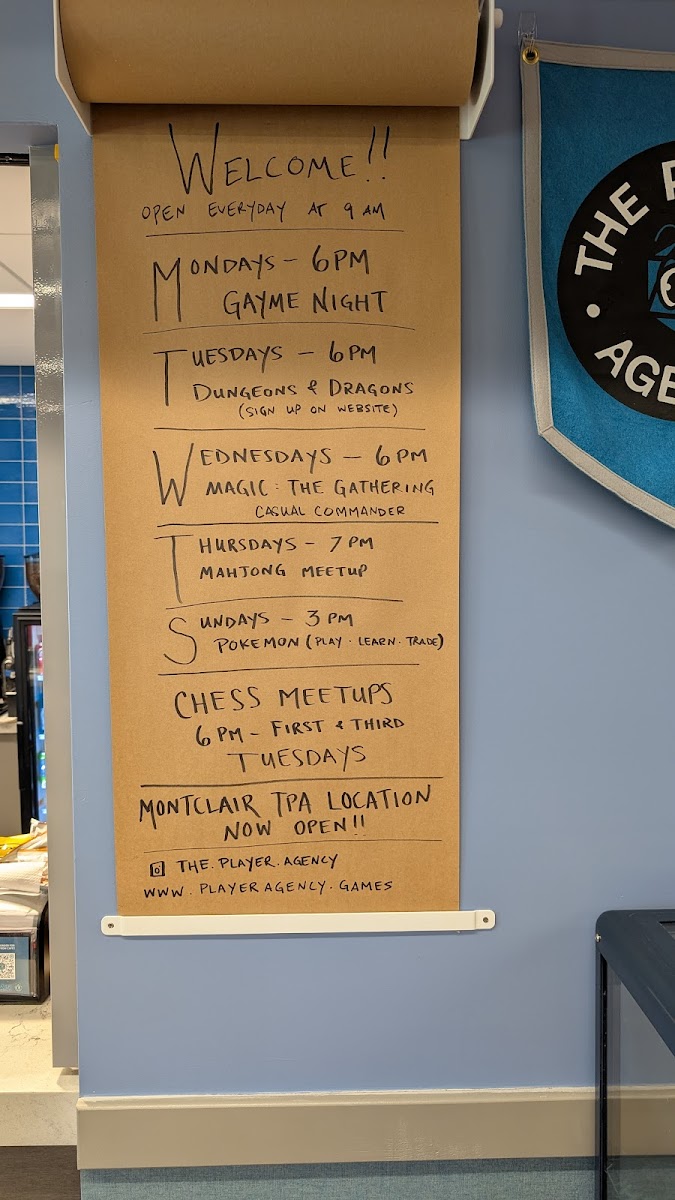 WELCOME!!
OPEN EVERYDAY AT 9 AM
MONDAYS - 6PM
GAYME NIGHT
TUESDAYS - 6PM
DUNGEONS & DRAGONS
(SIGN UP ON WEBSITE)
WEDNESDAYS - 6PM
MAGIC: THE GATHERING
CASUAL COMMANDER
THURSDAYS - 7PM
MAHJONG MEETUP
SUNDAYS - 3PM
POKEMON (PLAY · LEARN · TRADE)
CHESS MEETUPS
6PM - FIRST & THIRD
TUESDAYS
MONTCLAIR TPA LOCATION
NOW OPEN!!
THE.PLAYER.AGENCY
WWW.PLAYERAGENCY.GAMES
THE